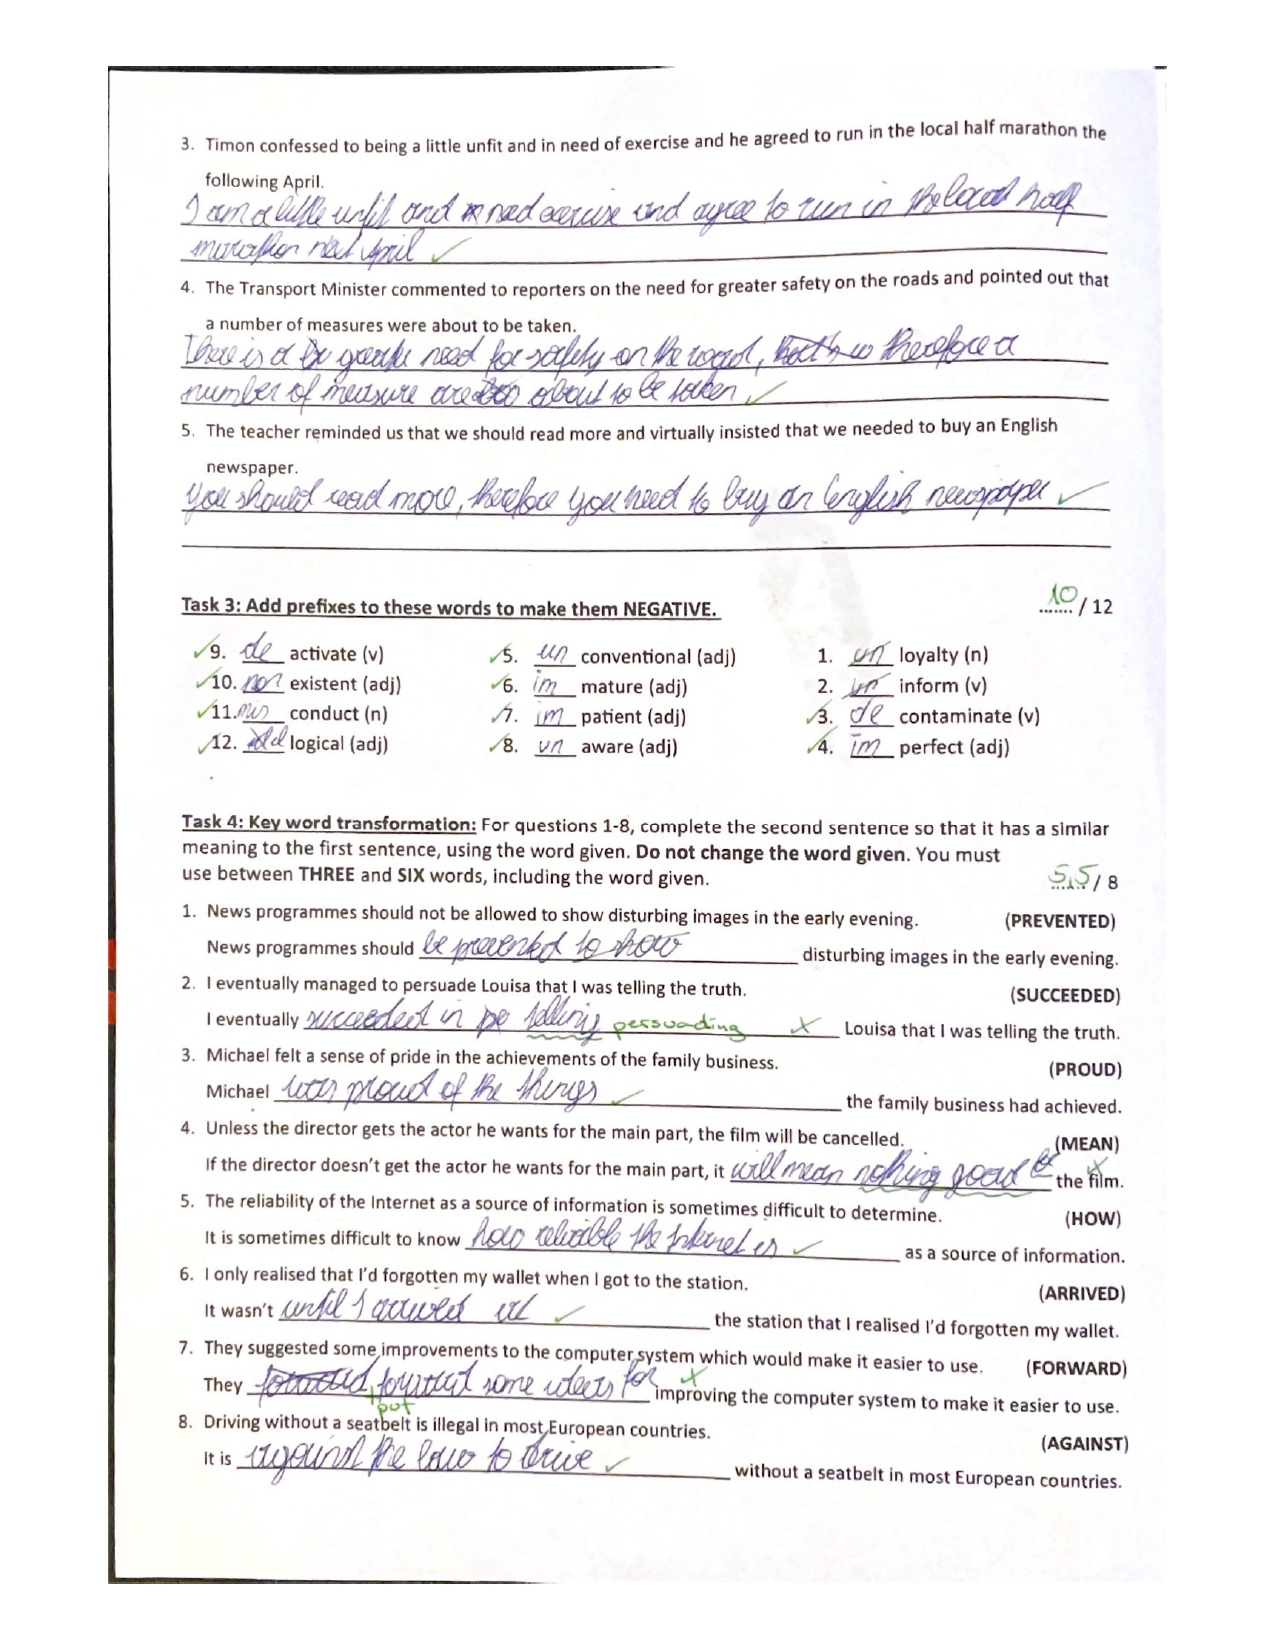 3. Timon confessed to being a little unfit and in need of exercise and he agreed to run in the local half marathon the
following April.
I am a little unfit and need exercise and agree to run in the local half
marathon next April ✓
4. The Transport Minister commented to reporters on the need for greater safety on the roads and pointed out that
a number of measures were about to be taken.
There is a greate need for safety on the road, therefore a
number of measure are about to be taken ✓
5. The teacher reminded us that we should read more and virtually insisted that we needed to buy an English
newspaper.
You should read more, therefore you need to buy an English newspaper ✓
Task 3: Add prefixes to these words to make them NEGATIVE. 10 / 12
✓9. de activate (v) ✓5. un conventional (adj) 1. un loyalty (n)
✓10. non existent (adj) ✓6. im mature (adj) 2. un inform (v)
✓11. mis conduct (n) ✓7. im patient (adj) ✓3. de contaminate (v)
✓12. logical (adj) ✓8. un aware (adj) ✓4. im perfect (adj)
Task 4: Key word transformation: For questions 1-8, complete the second sentence so that it has a similar
meaning to the first sentence, using the word given. Do not change the word given. You must
use between THREE and SIX words, including the word given. 5,5 / 8
1. News programmes should not be allowed to show disturbing images in the early evening. (PREVENTED)
News programmes should be prevented to show disturbing images in the early evening.
2. I eventually managed to persuade Louisa that I was telling the truth. (SUCCEEDED)
I eventually succeeded in pe telling persuading x Louisa that I was telling the truth.
3. Michael felt a sense of pride in the achievements of the family business. (PROUD)
Michael was proud of the things ✓ the family business had achieved.
4. Unless the director gets the actor he wants for the main part, the film will be cancelled. (MEAN)
If the director doesn't get the actor he wants for the main part, it will mean nothing good x the film.
5. The reliability of the Internet as a source of information is sometimes difficult to determine. (HOW)
It is sometimes difficult to know how reliable the Internet is ✓ as a source of information.
6. I only realised that I'd forgotten my wallet when I got to the station. (ARRIVED)
It wasn't until I arrived at ✓ the station that I realised I'd forgotten my wallet.
7. They suggested some improvements to the computer system which would make it easier to use. (FORWARD)
They forward some ideas for x improving the computer system to make it easier to use.
put
8. Driving without a seatbelt is illegal in most European countries. (AGAINST)
It is against the law to drive ✓ without a seatbelt in most European countries.